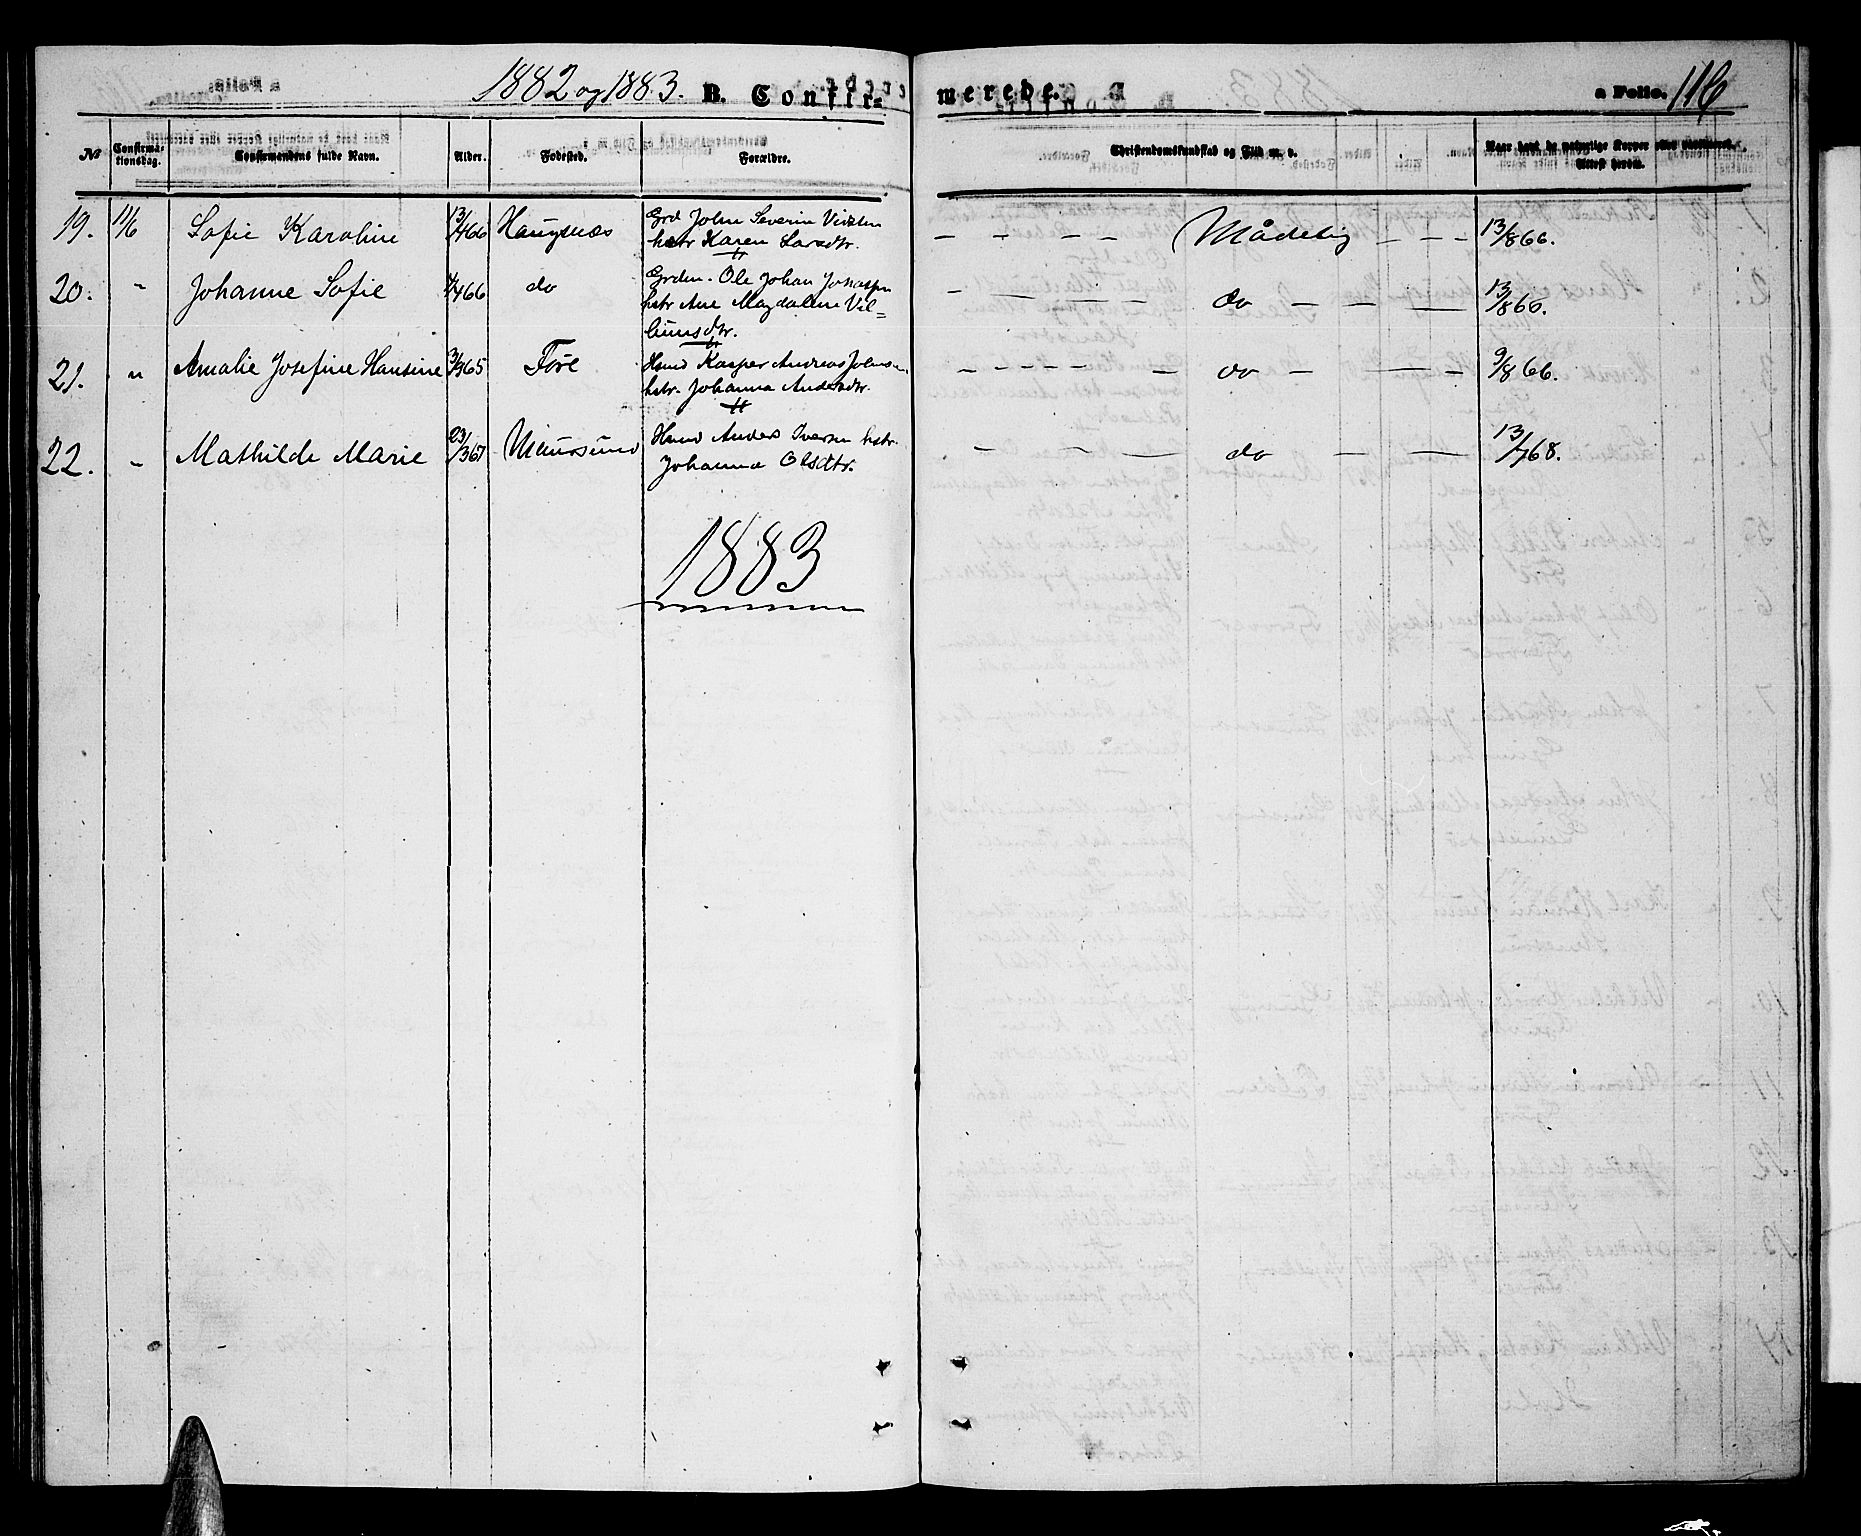 1882 og 1883. B. Confir= merede. a Folio. 116
No Confirma-tionsdag. Confirmandens fulde Navn. Alder. Fødested. Forældre. Christendomskundskab og Flid m. v. Naar havt de naturlige Kopper eller vaccineret. Attest herom.
19. 11/6 Sofie Karoline 13/466 Haugsnæs Grd John Severin
hstr Karen Larsdtr. Mådelig 13/866.
20. " Johanne Sofie 4/466 do Grdm. Ole Johan
hstr Ane Magdalene Vil=
do 13/866.
21. " Amalie Josefine Hansine 3/965 Føre Hsmd Kasper Andreas Johnsen
hstr. Johanna Andersdtr. do 9/866.
22. " Mathilde Marie 23/367 Maursund Hsmd Anders Iversen hstr.
Johanna Olsdtr. do 13/768.
1883